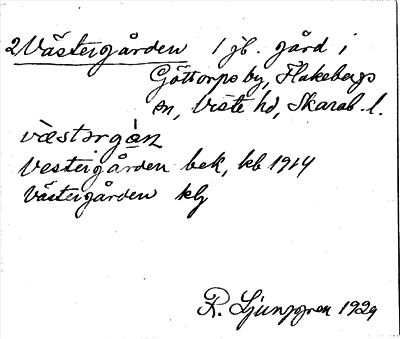 2 Västergården 1 jb. gård i
Göttorps by, Flakebergs
sn, Viste hd, Skarab. l.
væstərgàn
Vestergården bek, kb 1914
Västergården klj
R. Ljunggren 1929